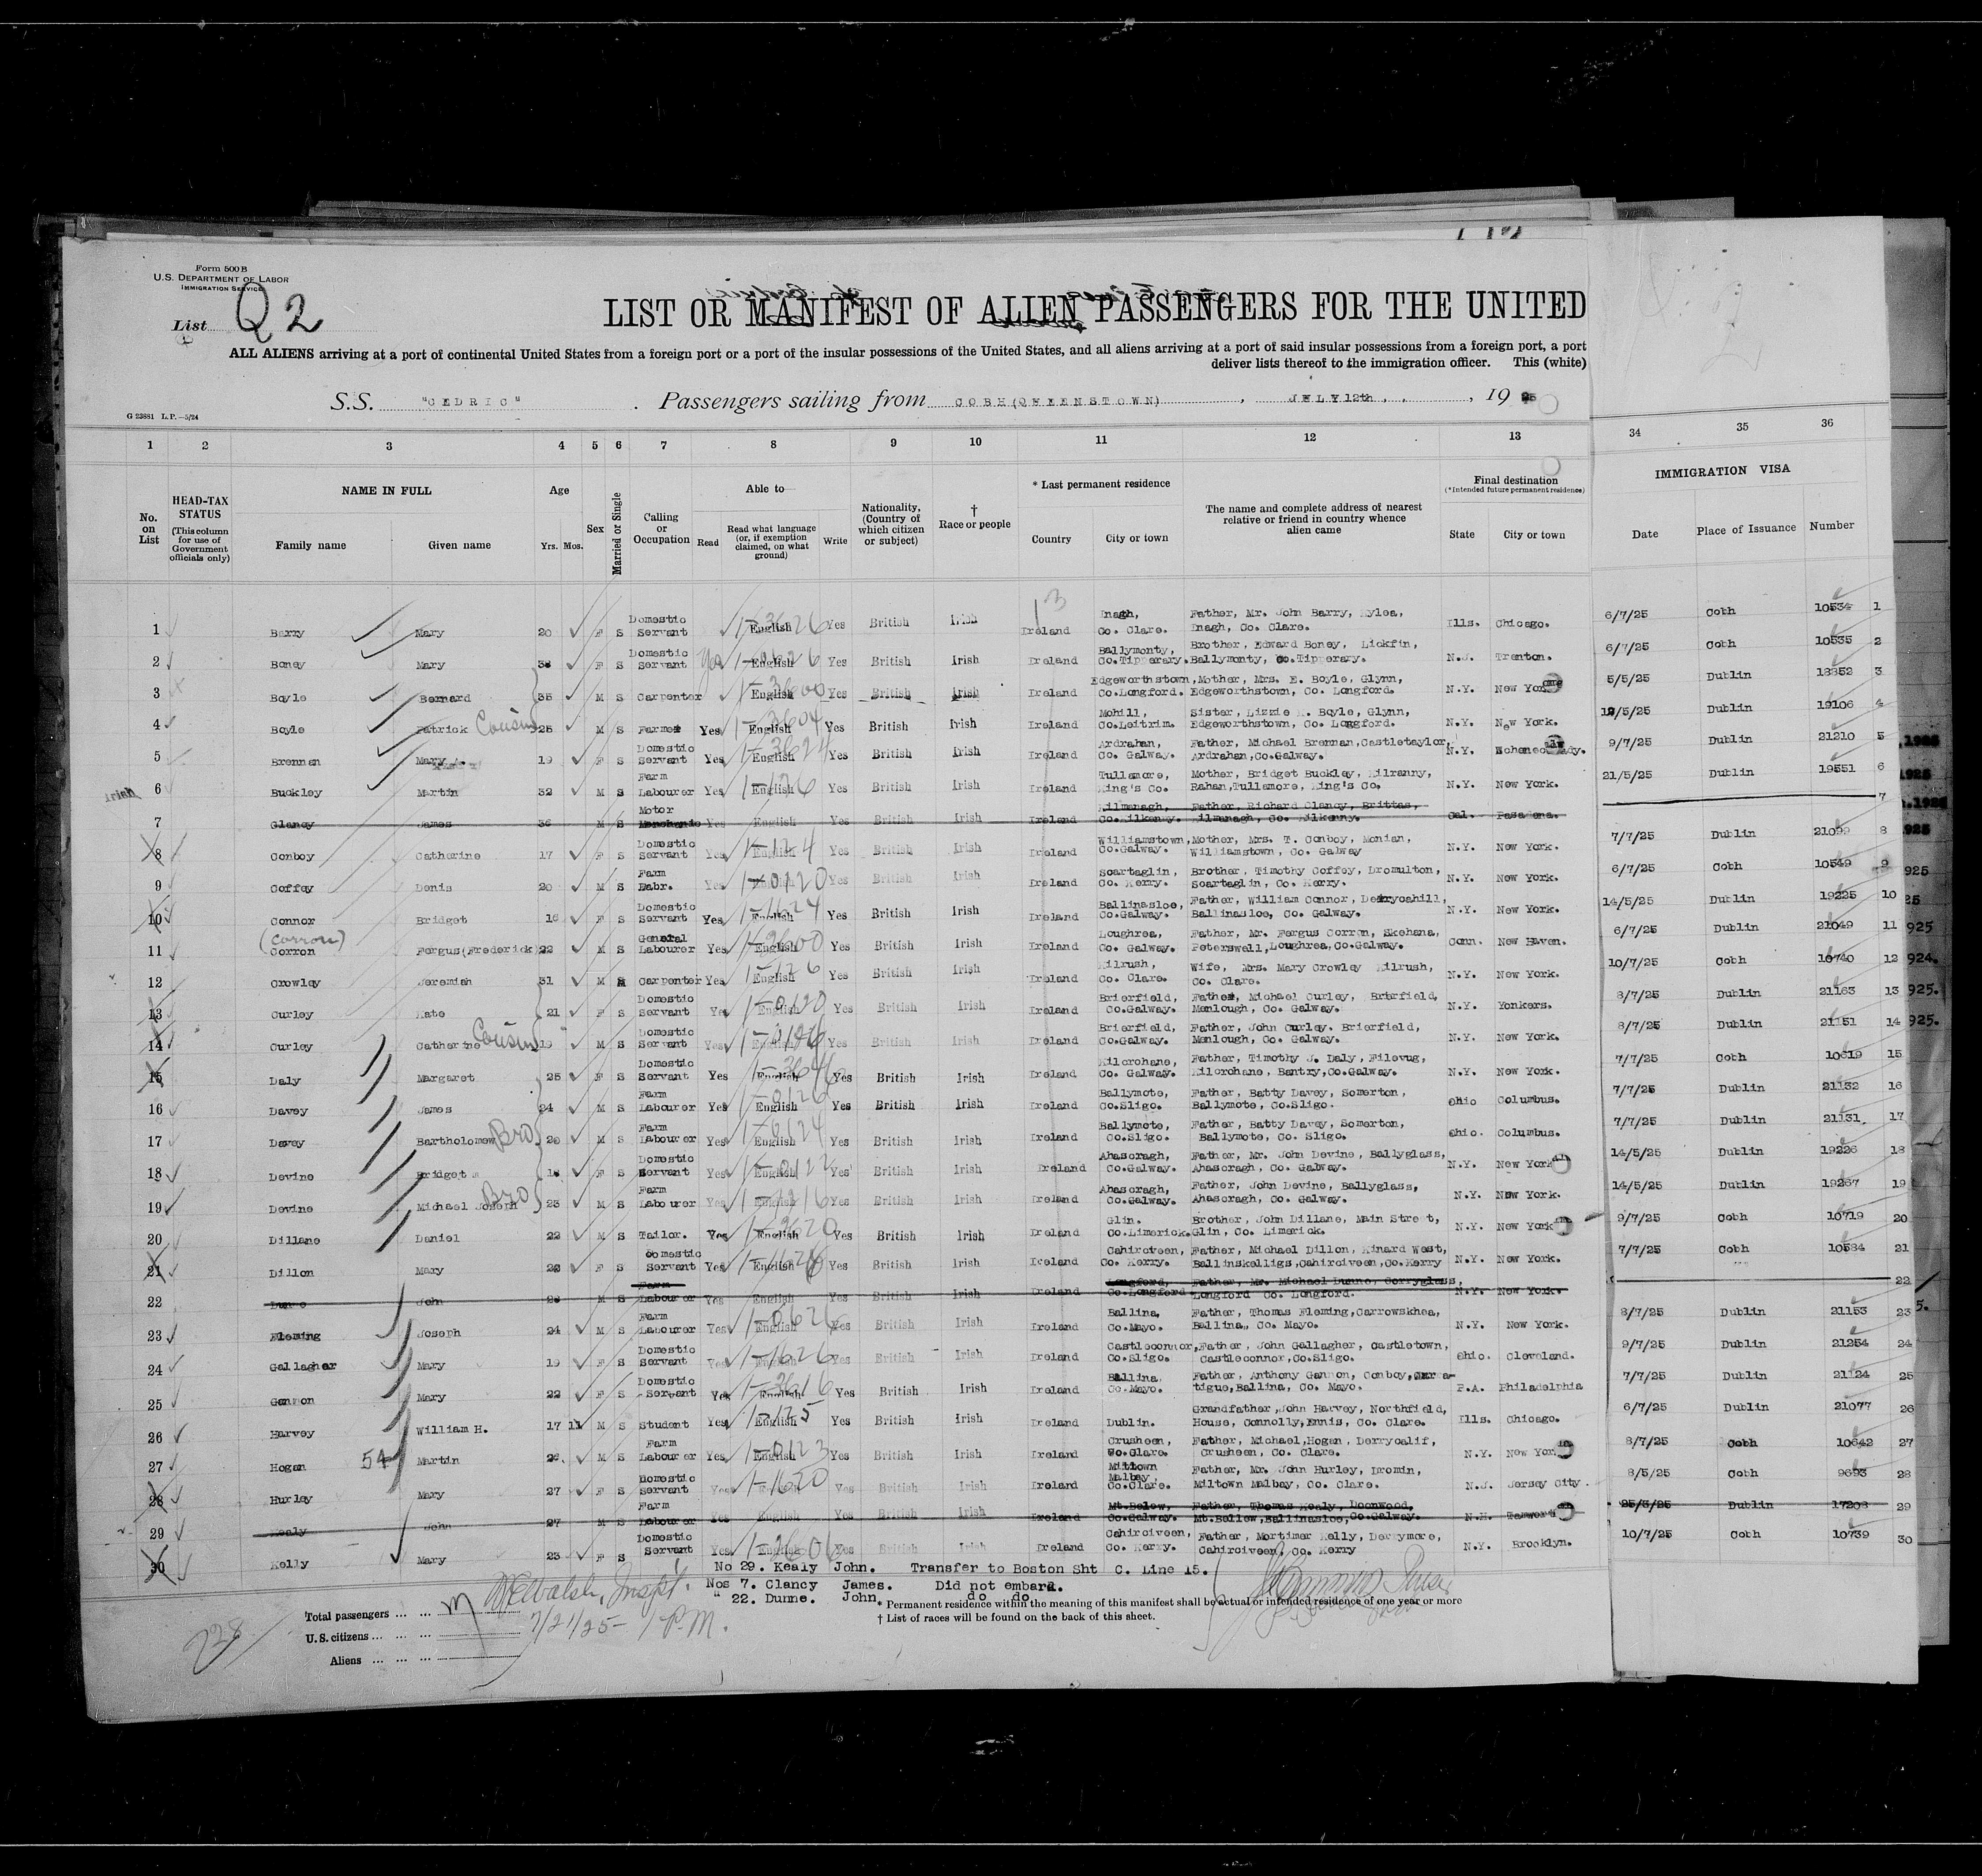 Form 500 B
U.S. DEPARTMENT OF LABOR
IMMIGRATION SERVICE
List Q 2
LIST OR MANIFEST OF ALIEN PASSENGERS FOR THE UNITED
ALL ALIENS arriving at a port of continental United States from a foreign port or a port of the insular possessions of the United States, and all aliens arriving at a port of said insular possessions from a foreign port, a port
deliver lists thereof to the immigration officer. This (white)
G 23881 L.P.—5/24
S.S. "CEDRIC" . Passengers sailing from COBH(QUEENSTOWN) , JULY 12th, , 19 25
1 2 3 4 5 6 7 8 9 10 11 12 13 34 35 36
No. on List
HEAD-TAX STATUS (This column for use of Government officials only)
NAME IN FULL
Family name Given name
Age
Yrs. Mos.
Sex
Married or Single
Calling or Occupation
Able to
Read Read what language (or, if exemption claimed, on what ground) Write
Nationality, (Country of which citizen or subject)
† Race or people
* Last permanent residence
Country City or town
The name and complete address of nearest relative or friend in country whence alien came
Final destination
(*Intended future permanent residence)
State City or town
IMMIGRATION VISA
Date Place of Issuance Number
1 Barry Mary 20 F S Domestic Servant English Yes British Irish Ireland Inagh, Co. Clare. Father, Mr. John Barry, Kylea, Inagh, Co. Clare. Ills. Chicago. 6/7/25 Cobh 10534 1
2 Boney Mary F S Domestic Servant Yes English Yes British Irish Ireland Ballymonty, Co.Tipperary. Brother, Edward Boney, Lickfin, Ballymonty, Co.Tipperary. N.J. Trenton. 6/7/25 Cobh 10535 2
3 Boyle Bernard 35 M S Carpenter English Yes British Irish Ireland Edgeworthstown, Co.Longford. Mother, Mrs. E. Boyle, Glynn, Edgeworthstown, Co. Longford. N.Y. New York 5/5/25 Dublin 18852 3
4 Boyle Patrick Cousin 25 M S Farmer Yes English Yes British Irish Ireland Mohill, Co.Leitrim. Sister, Lizzie Boyle, Glynn, Edgeworthstown, Co. Longford. N.Y. New York. 12/5/25 Dublin 19106 4
5 Brennan Mary 19 F S Domestic Servant Yes English Yes British Irish Ireland Ardrahan, Co. Galway. Father, Michael Brennan, Castletaylor, Ardrahan, Co.Galway. N.Y. Schenectady. 9/7/25 Dublin 21210 5
6 Buckley Martin 32 M S Farm Labourer Yes English Yes British Irish Ireland Tullamore, King's Co. Mother, Bridget Buckley, Kilranny, Rahan, Tullamore, King's Co. N.Y. New York. 21/5/25 Dublin 19551 6
7 Clancy James 36 M S Motor Mechanic Yes English Yes British Irish Ireland Kilmanagh, Co.Kilkenny. Father, Richard Clancy, Brittas, Kilmanagh, Co. Kilkenny. Cal. Pasadena. 7
8 Conboy Catherine 17 F S Domestic Servant Yes English Yes British Irish Ireland Williamstown, Co.Galway. Mother, Mrs. T. Conboy, Monian, Williamstown, Co. Galway N.Y. New York. 7/7/25 Dublin 21099 8
9 Coffey Denis 20 M S Farm Labr. Yes English Yes British Irish Ireland Scartaglin, Co. Kerry. Brother, Timothy Coffey, Dromulton, Scartaglin, Co. Kerry. N.Y. New York. 6/7/25 Cobh 10549 9
10 Connor Bridget 18 F S Domestic Servant Yes English Yes British Irish Ireland Ballinasloe, Co.Galway. Father, William Connor, Derrycahill, Ballinasloe, Co. Galway. N.Y. New York. 14/5/25 Dublin 19225 10
11 (Corron) Corron Fergus(Frederick) 22 M S General Labourer Yes English Yes British Irish Ireland Loughrea, Co. Galway. Father, Mr. Fergus Corron, Skehana, Peterswell, Loughrea, Co.Galway. Conn. New Haven. 6/7/25 Dublin 21049 11
12 Crowley Jeremiah 31 M M Carpenter Yes English Yes British Irish Ireland Kilrush, Co. Clare. Wife, Mrs. Mary Crowley Kilrush, Co. Clare. N.Y. New York. 10/7/25 Cobh 10740 12
13 Curley Kate 21 F S Domestic Servant Yes English Yes British Irish Ireland Brierfield, Co.Galway. Father, Michael Curley, Brierfield, Menlough, Co. Galway. N.Y. Yonkers. 8/7/25 Dublin 21163 13
14 Curley Catherine Cousin 19 M S Domestic Servant Yes English Yes British Irish Ireland Brierfield, Co.Galway. Father, John Curley. Brierfield, Menlough, Co. Galway. N.Y. New York. 8/7/25 Dublin 21151 14
15 Daly Margaret 25 F S Domestic Servant Yes English Yes British Irish Ireland Kilcrohane, Co. Galway. Father, Timothy J. Daly, Filevug, Kilcrohane, Bantry, Co.Galway. N.Y. New York. 7/7/25 Cobh 10619 15
16 Davey James 24 M S Farm Labourer Yes English Yes British Irish Ireland Ballymote, Co.Sligo. Father, Batty Davey, Somerton, Ballymote, Co.Sligo. Ohio Columbus. 7/7/25 Dublin 21132 16
17 Davey Bartholomew Bro 20 M S Farm Labourer Yes English Yes British Irish Ireland Ballymote, Co.Sligo. Father, Batty Davey, Somerton, Ballymote, Co. Sligo. Ohio. Columbus. 7/7/25 Dublin 21131. 17
18 Devine Bridget F S Domestic Servant Yes English Yes British Irish Ireland Ahascragh, Co.Galway. Father, Mr. John Devine, Ballyglass, Ahascragh, Co. Galway. N.Y. New York 14/5/25 Dublin 19226 18
19 Devine Michael Joseph Bro 23 M S Farm Labourer Yes English Yes British Irish Ireland Ahascragh, Co.Galway. Father, John Devine, Ballyglass, Ahascragh, Co. Galway. N.Y. New York. 14/5/25 Dublin 19267 19
20 Dillane Daniel 22 M S Tailor. Yes English Yes British Irish Ireland Glin. Co.Limerick. Brother, John Dillane, Main Street, Glin, Co. Limerick. N.Y. New York 9/7/25 Cobh 10719 20
21 Dillon Mary 22 F S Domestic Servant Yes English Yes British Irish Ireland Cahirciveen, Co. Kerry. Father, Michael Dillon, Kinard West, Ballinskelligs, Cahirciveen, Co.Kerry N.Y. New York. 7/7/25 Cobh 10584 21
22 Dunne John M S Farm Labourer Yes English Yes British Irish Ireland Longford, Co.Longford Father, Mr. Michael Dunne, Corryglass, Longford Co. Longford. N.Y. New York. 22
23 Fleming Joseph 24 M S Farm Labourer Yes English Yes British Irish Ireland Ballina, Co.Mayo. Father, Thomas Fleming, Carrowskhea, Ballina, Co. Mayo. N.Y. New York. 8/7/25 Dublin 21153 23
24 Gallagher Mary 19 F S Domestic Servant Yes English Yes British Irish Ireland Castleconnor, Co.Sligo. Father, John Gallagher, Castletown, Castleconnor, Co.Sligo. Ohio. Cleveland. 9/7/25 Dublin 21254 24
25 Gannon Mary 22 F S Domestic Servant Yes English Yes British Irish Ireland Ballina, Co.Mayo. Father, Anthony Gannon, Conboy, tigue, Ballina, Co. Mayo. P.A. Philadelphia 7/7/25 Dublin 21124 25
26 Harvey William H. 17 11 M S Student Yes English Yes British Irish Ireland Dublin. Grandfather, John Harvey, Northfield, House, Connolly, Ennis, Co. Clare. Ills. Chicago. 6/7/25 Dublin 21077 26
27 Hogan 54 Martin M S Farm Labourer Yes English Yes British Irish Ireland Crusheen, Co.Clare. Father, Michael, Hogan, Derrycalif, Crusheen, Co. Clare. N.Y. New York 8/7/25 Cobh 10642 27
28 Hurley Mary 27 F S Domestic Servant Yes English Yes British Irish Ireland Miltown Malbay, Co.Clare. Father, Mr. John Hurley, Dromin, Miltown Malbay, Co. Clare. N.J. Jersey City. 8/5/25 Cobh 9693 28
29 Kealy John 27 M S Farm Labourer Yes English Yes British Irish Ireland Mt.Belew, Co.Galway. Father, Thomas Kealy, Doonwood, Mt.Bellew, Ballinasloe, Co.Galway. N.H. 25/3/25 Dublin 17208 29
30 Kelly Mary 23 F S Domestic Servant Yes English Yes British Irish Ireland Cahirciveen, Co. Kerry. Father, Mortimer Kelly, Derrymore, Cahirciveen, Co. Kerry N.Y. Brooklyn. 10/7/25 Cobh 10739 30
No 29. Kealy John. Transfer to Boston Sht C. Line 15.
Nos 7. Clancy James. Did not embark.
" 22. Dunne. John. do do.
Walsh, Inspt.
7/21/25 – 1 P.M.
Total passengers
U.S. citizens
Aliens
* Permanent residence within the meaning of this manifest shall be actual or intended residence of one year or more
† List of races will be found on the back of this sheet.